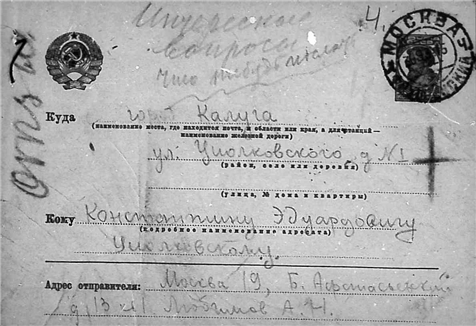 Интересные
вопросы
Что нибудь послать
4.
МОСКВА
Отв.
Куда город Калуга
(наименование места, где находится почта, и области или края, а для станций—
наименование железной дороги)
ул. Циолковского, д №1
(район, село или деревня)
(улица, № дома и квартиры)
Кому Константину Эдуардовичу
(подробное наименование адресата)
Циолковскому.
Адрес отправителя: Москва 19, Б. Афанасьевский
д 13 Любимов А.Н.